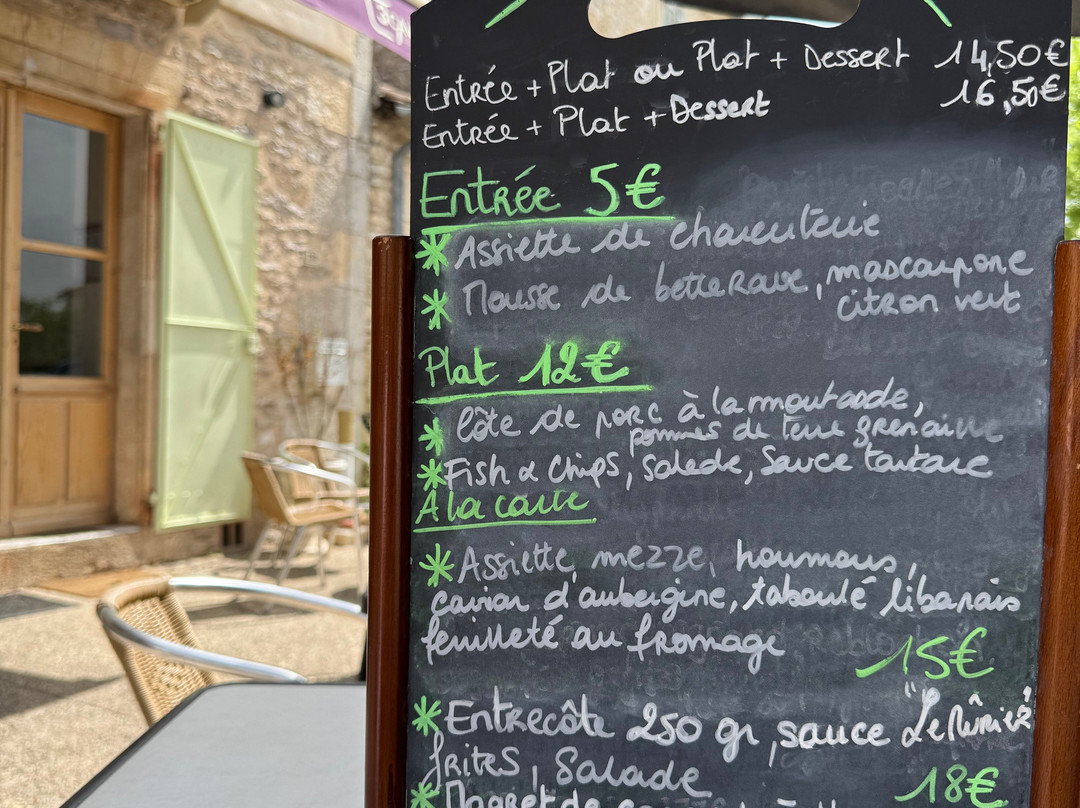 Entrée + Plat ou Plat + Dessert 14,50€
Entrée + Plat + Dessert 16,50€
Entrée 5€
* Assiette de charcuterie
* Mousse de betterave, mascarpone
citron vert
Plat 12€
* Côte de porc à la moutarde,
pommes de terre grenaille
* Fish & Chips, Salade, Sauce tartare
A la carte
* Assiette mezze, houmous,
caviar d'aubergine, taboulé libanais
feuilleté au fromage
15€
* Entrecôte 250 gr, sauce
frites, Salade
18€
* Magret de